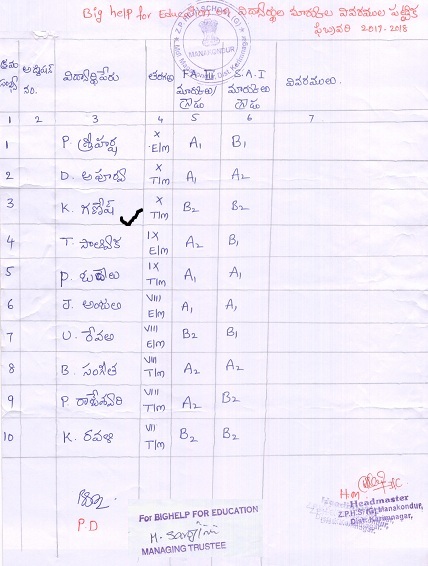 Big help for Education వారి విద్యార్థుల మార్కుల వివరముల పట్టిక
ఫిబ్రవరి 2017-2018
Z.P.H.SCHOOL (G)
MANAKONDUR
క్రమ సంఖ్య అడ్మిషన్ నం. విద్యార్థి పేరు తరగతి FA III మార్కులు/ గ్రేడు S.A.I మార్కులు గ్రేడు వివరములు.
1 2 3 4 5 6 7
1 P. శ్రీహర్ష X E/m A1 B1
2 D. అపూర్వ X T/m A1 A2
3 K. గణేష్ X T/m B2 B2
4 T. సాత్విక IX E/m A2 B1
5 P. IX T/m A1 A1
6 J. అంజలి VIII E/m A1 A1
7 U. రేవతి VIII E/m B2 B1
8 B. సంగీత VIII T/m A2 A2
9 P. రాజేశ్వరి VII T/m A2 B2
10 K. రవళి VI T/m B2 B2
P.D
For BIGHELP FOR EDUCATION
MANAGING TRUSTEE
H.m
Headmaster
Z.P.H.S (G) Manakondur,
Dist: Karimnagar,